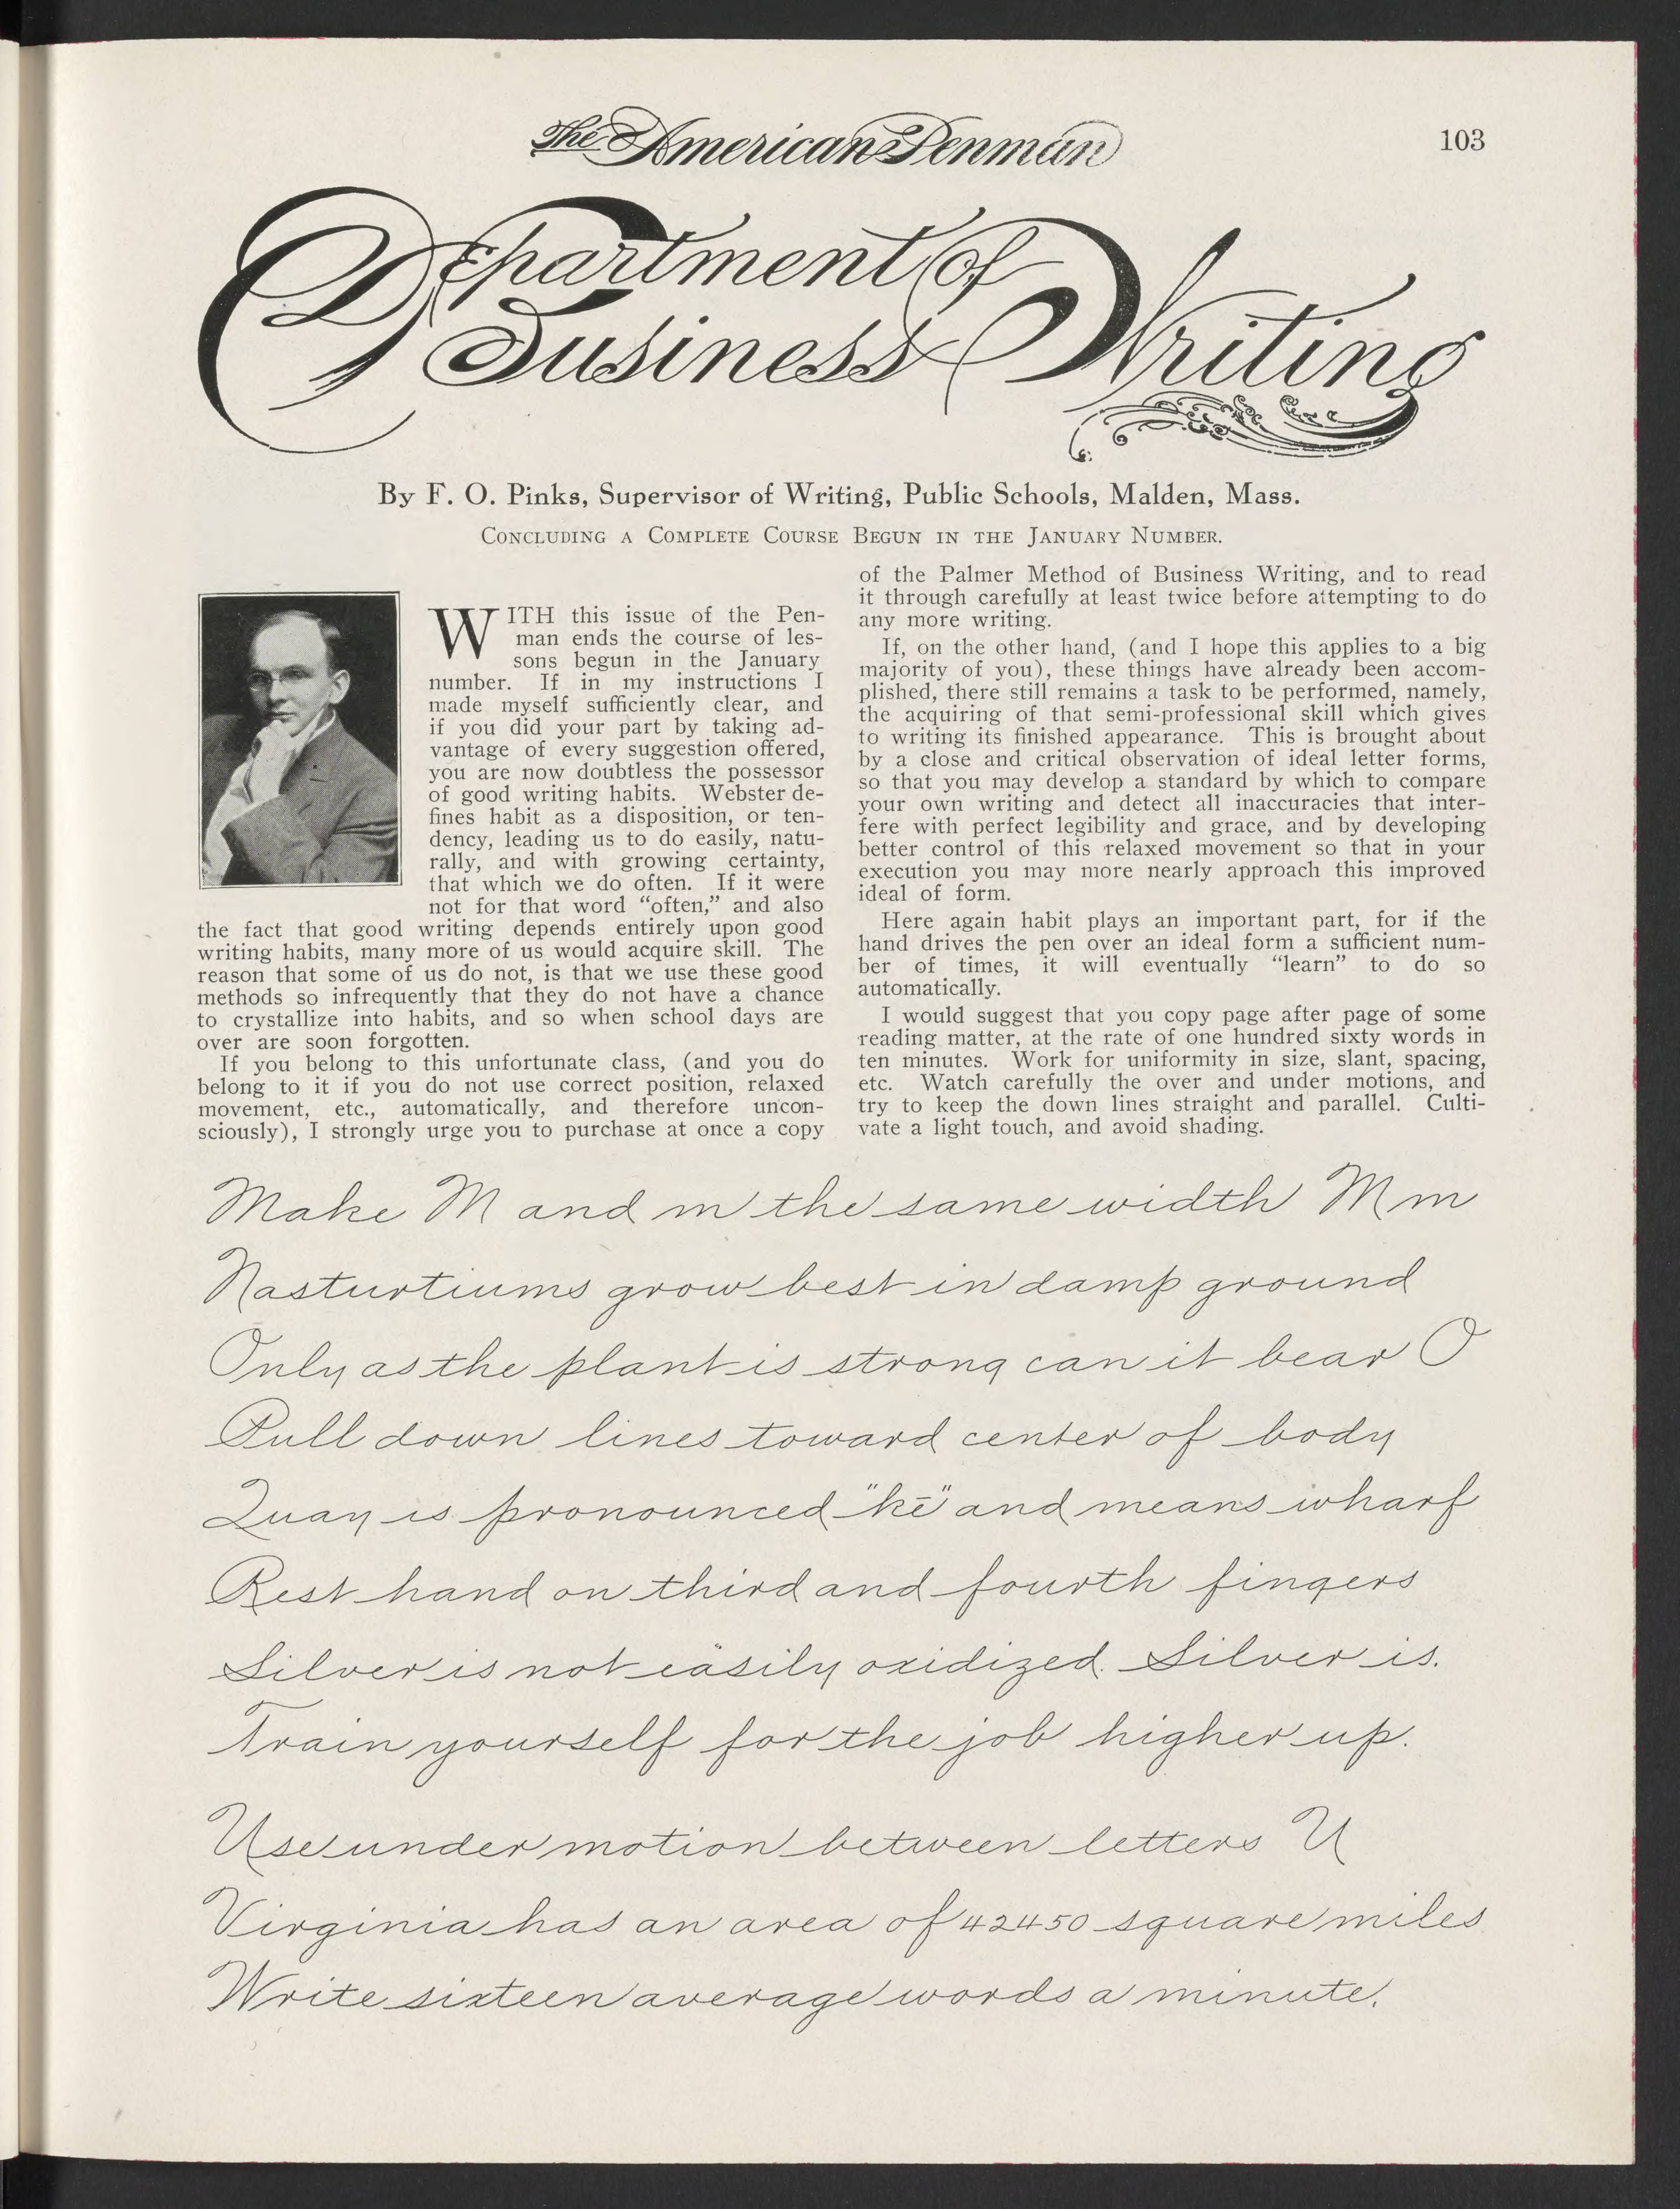 The American Penman
103
Department of
Business Writing
By F. O. Pinks, Supervisor of Writing, Public Schools, Malden, Mass.
Concluding a Complete Course Begun in the January Number.
WITH this issue of the Pen-
man ends the course of les-
sons begun in the January
number. If in my instructions I
made myself sufficiently clear, and
if you did your part by taking ad-
vantage of every suggestion offered,
you are now doubtless the possessor
of good writing habits. Webster de-
fines habit as a disposition, or ten-
dency, leading us to do easily, natu-
rally, and with growing certainty,
that which we do often. If it were
not for that word "often," and also
the fact that good writing depends entirely upon good
writing habits, many more of us would acquire skill. The
reason that some of us do not, is that we use these good
methods so infrequently that they do not have a chance
to crystallize into habits, and so when school days are
over are soon forgotten.
If you belong to this unfortunate class, (and you do
belong to it if you do not use correct position, relaxed
movement, etc., automatically, and therefore uncon-
sciously), I strongly urge you to purchase at once a copy
of the Palmer Method of Business Writing, and to read
it through carefully at least twice before attempting to do
any more writing.
If, on the other hand, (and I hope this applies to a big
majority of you), these things have already been accom-
plished, there still remains a task to be performed, namely,
the acquiring of that semi-professional skill which gives
to writing its finished appearance. This is brought about
by a close and critical observation of ideal letter forms,
so that you may develop a standard by which to compare
your own writing and detect all inaccuracies that inter-
fere with perfect legibility and grace, and by developing
better control of this relaxed movement so that in your
execution you may more nearly approach this improved
ideal of form.
Here again habit plays an important part, for if the
hand drives the pen over an ideal form a sufficient num-
ber of times, it will eventually "learn" to do so
automatically.
I would suggest that you copy page after page of some
reading matter, at the rate of one hundred sixty words in
ten minutes. Work for uniformity in size, slant, spacing,
etc. Watch carefully the over and under motions, and
try to keep the down lines straight and parallel. Culti-
vate a light touch, and avoid shading.
Make M and m the same width M m
Nasturtiums grow best in damp ground
Only as the plant is strong can it bear O
Pull down lines toward center of body
Quay is pronounced "kē" and means wharf
Rest hand on third and fourth fingers
Silver is not easily oxidized. Silver is.
Train yourself for the job higher up.
Use under motion between letters U
Virginia has an area of 42450 square miles
Write sixteen average words a minute.